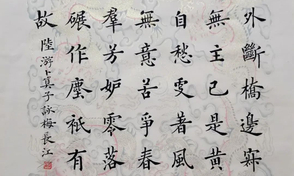 外斷橋邊寂
無主已是黃
自愁更著風
無意苦爭春
羣芳妒零落
碾作塵祇有
故
陸游卜算子詠梅長江